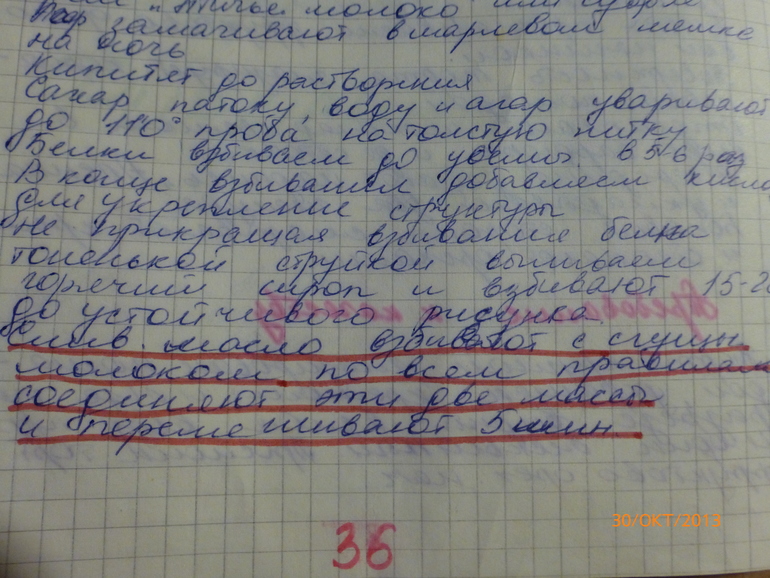 "Птичье молоко или суфле
Агар замачивают в марлевом мешке
на ночь
Кипитят до растворения
Сахар, патоку, воду и агар уваривают
до 110° проба на толстую нитку
Белки взбиваем до увелич. в 5-6 раз
В конце взбивания добавляем кисло
для укрепление структуры
не прикращая взбивания белка
тоненькой струйкой выливаем
горячий сироп и взбивают 15-2
до устойчивого рисунка.
Слив. масло взбивают с сгущы
молоком по всем правилам
соединяют эти две массы
и перемешивают 5 мин
36
30/ОКТ/2013